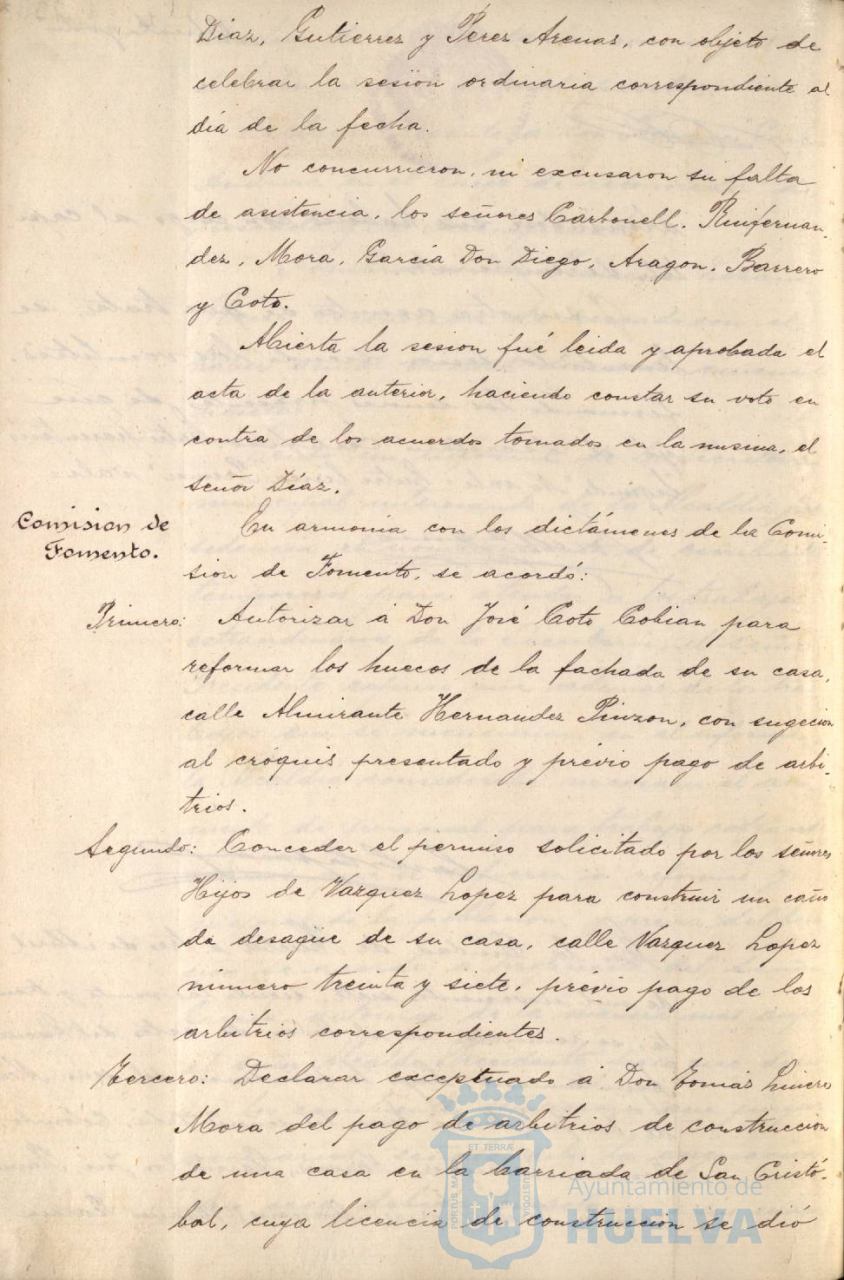 Diaz, Gutierrez y Perez Arenas, con objeto de
celebrar la sesion ordinaria correspondiente al
dia de la fecha.
No concurrieron, ni excusaron su falta
de asistencia, los señores Carbonell, Ruifernan-
dez, Mora, García Don Diego, Aragon, Barrero
y Coto.
Abierta la sesion fué leida y aprobada el
acta de la anterior, haciendo constar su voto en
contra de los acuerdos tomados en la misma, el
señor Díaz.
Comision de
Fomento.
En armonia con los dictámenes de la Comi-
sion de Fomento, se acordó:
Primero: Autorizar á Don José Coto Cobian para
reformar los huecos de la fachada de su casa,
calle Almirante Hernandez Pinzon, con sugecion
al cróquis presentado y prévio pago de arbi-
trios.
Segundo: Conceder el permiso solicitado por los señores
Hijos de Vazquez Lopez para construir un caño
de desagüe de su casa, calle Vazquez Lopez
número treinta y siete, prévio pago de los
arbitrios correspondientes.
Tercero: Declarar exceptuado á Don Tomás Linero
Mora del pago de arbitrios de construccion
de una casa en la barriada de San Cristó-
bal, cuya licencia de construccion se dió
PORTUS MARIS ET TERRÆ CUSTODIA
Ayuntamiento de
HUELVA